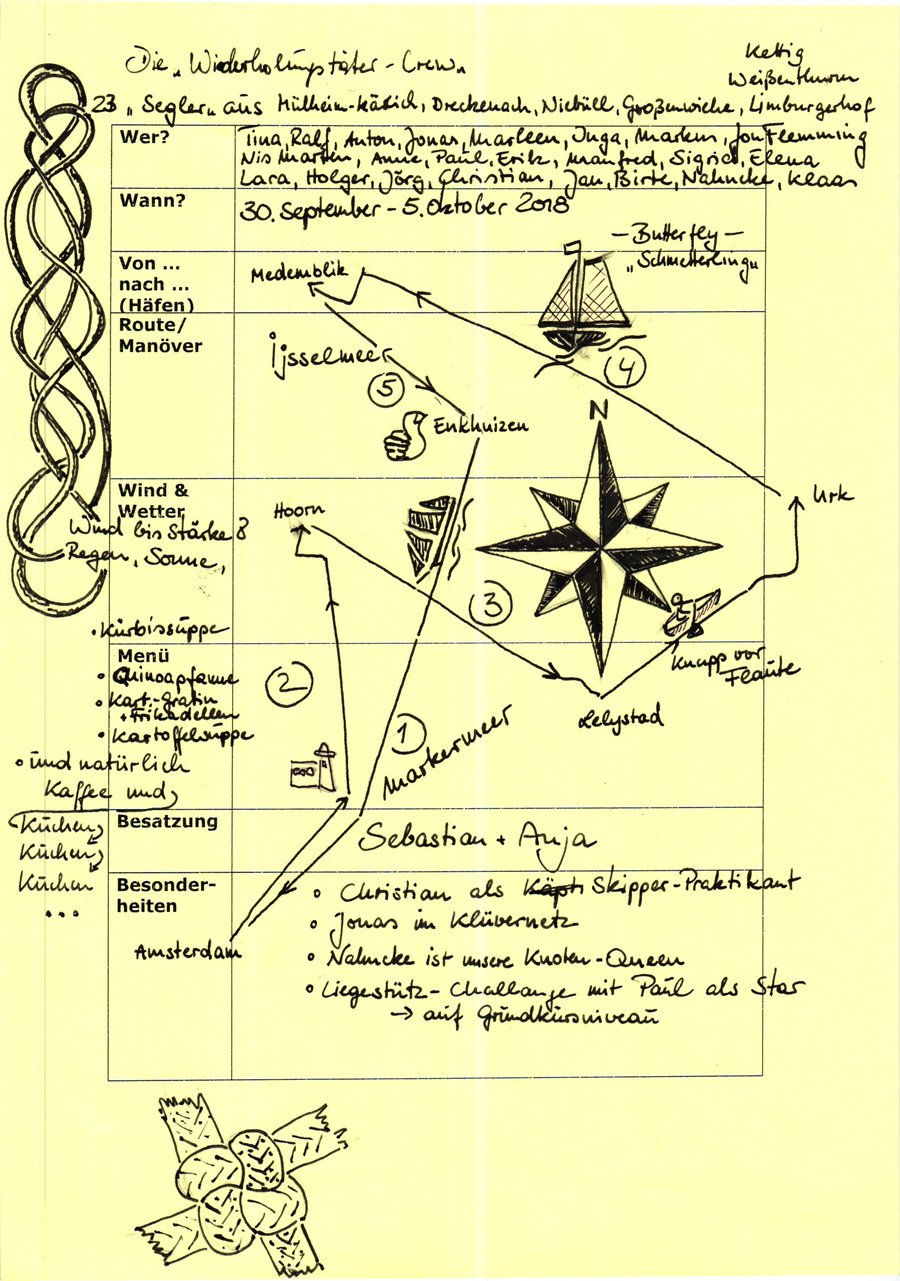 Die „Wiederholungstäter-Crew"
Kettig
Weißenthurm
23 „Segler" aus Mülheim-Kärlich, Dreckenach, Niebüll, Großenwiehe, Limburgerhof
Wer?
Tina, Ralf, Anton, Jonas, Marleen, Inga, Markus, Jon Flemming
Nis Marten, Anne, Paul, Erik, Manfred, Sigrid, Elena
Lara, Holger, Jörg, Christian, Jan, Birte, Nahmcke, Klaas
Wann?
30. September - 5. Oktober 2018
- Butterfly -
„Schmetterling"
Von ...
nach ...
(Häfen)
Medemblik
Route/
Manöver
Ijsselmeer
4
5
Enkhuizen
N
Wind &
Wetter
Wind bis Stärke 8
Regen, Sonne,
Hoorn
Urk
3
• Kürbissuppe
Menü
• Quinoapfanne
• Kart.-Gratin
+ Frikadellen
• Kartoffelsuppe
• und natürlich
Kaffee und
Kuchen,
Kuchen,
Kuchen
...
2
1
Markermeer
Knapp vor
Flaute
Lelystad
Besatzung
Sebastian + Anja
Besonder-
heiten
• Christian als Käpt Skipper-Praktikant
• Jonas im Klüvernetz
• Nahmcke ist unsere Knoten-Queen
• Liegestütz-Challange mit Paul als Star
→ auf Grundkursniveau
Amsterdam